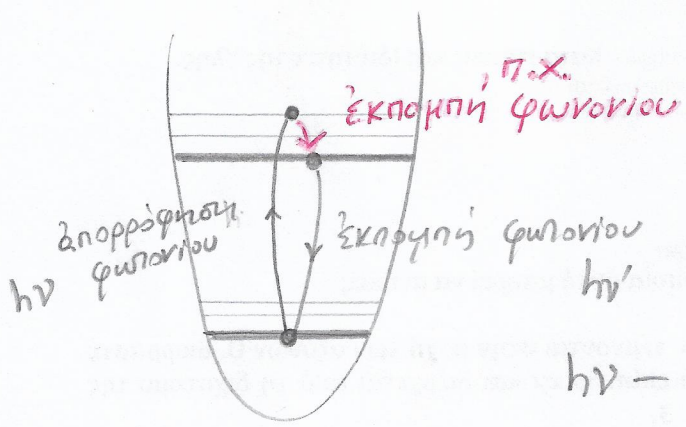 , π.χ.
ἐκπομπή φωνονίου
ἀπορρόφηση
φωτονίου
hν
ἐκπομπή φωτονίου
hν'
hν